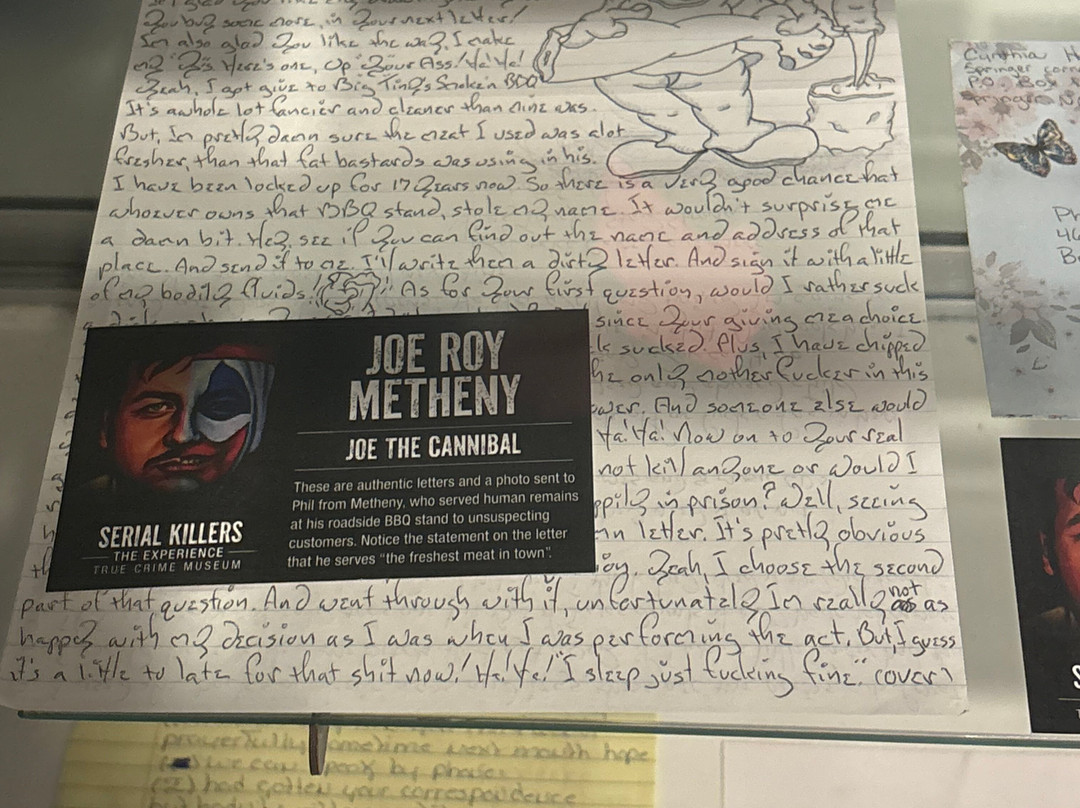 some more, in Your next letter!
Im also glad You like the way, I make
my "Y"s. Here's one, Up Your Ass! He! He!
Yeah, I got give to Big Tiny's Smoken BBQ
It's awhole lot fancier and cleaner than mine was.
But, Im pretty damn sure the meat I used was alot
fresher, than that fat bastards was using in his.
I have been locked up for 17 Years now. So there is a very good chance that
whoever owns that BBQ stand, stole my name. It wouldn't surprise me
a damn bit. Hey, see if You can find out the name and address of that
place. And send it to me. I'll write them a dirty letter. And sign it with a little
of my bodily fluids! As for Your first question, would I rather suck
since Your giving me a choice
sucked. Plus, I have chipped
only mother fucker in this
And someone else would
Ha! Ha! Now on to Your real
not kill anyone or would I
in prison? Well, seeing
letter. It's pretty obvious
Yeah, I choose the second
part of that question. And went through with it, unfortunately Im really not as
happy with my decision as I was when I was performing the act. But, I guess
it's a little to late for that shit now! He! He! "I sleep just fucking fine." (over)
JOE ROY
METHENY
JOE THE CANNIBAL
These are authentic letters and a photo sent to
Phil from Metheny, who served human remains
at his roadside BBQ stand to unsuspecting
customers. Notice the statement on the letter
that he serves "the freshest meat in town".
SERIAL KILLERS
THE EXPERIENCE
TRUE CRIME MUSEUM
Cynthia H
Springer
P.O. Box
Springer N
sometime next month hope
we can by phone
(2) had gotten your correspondence